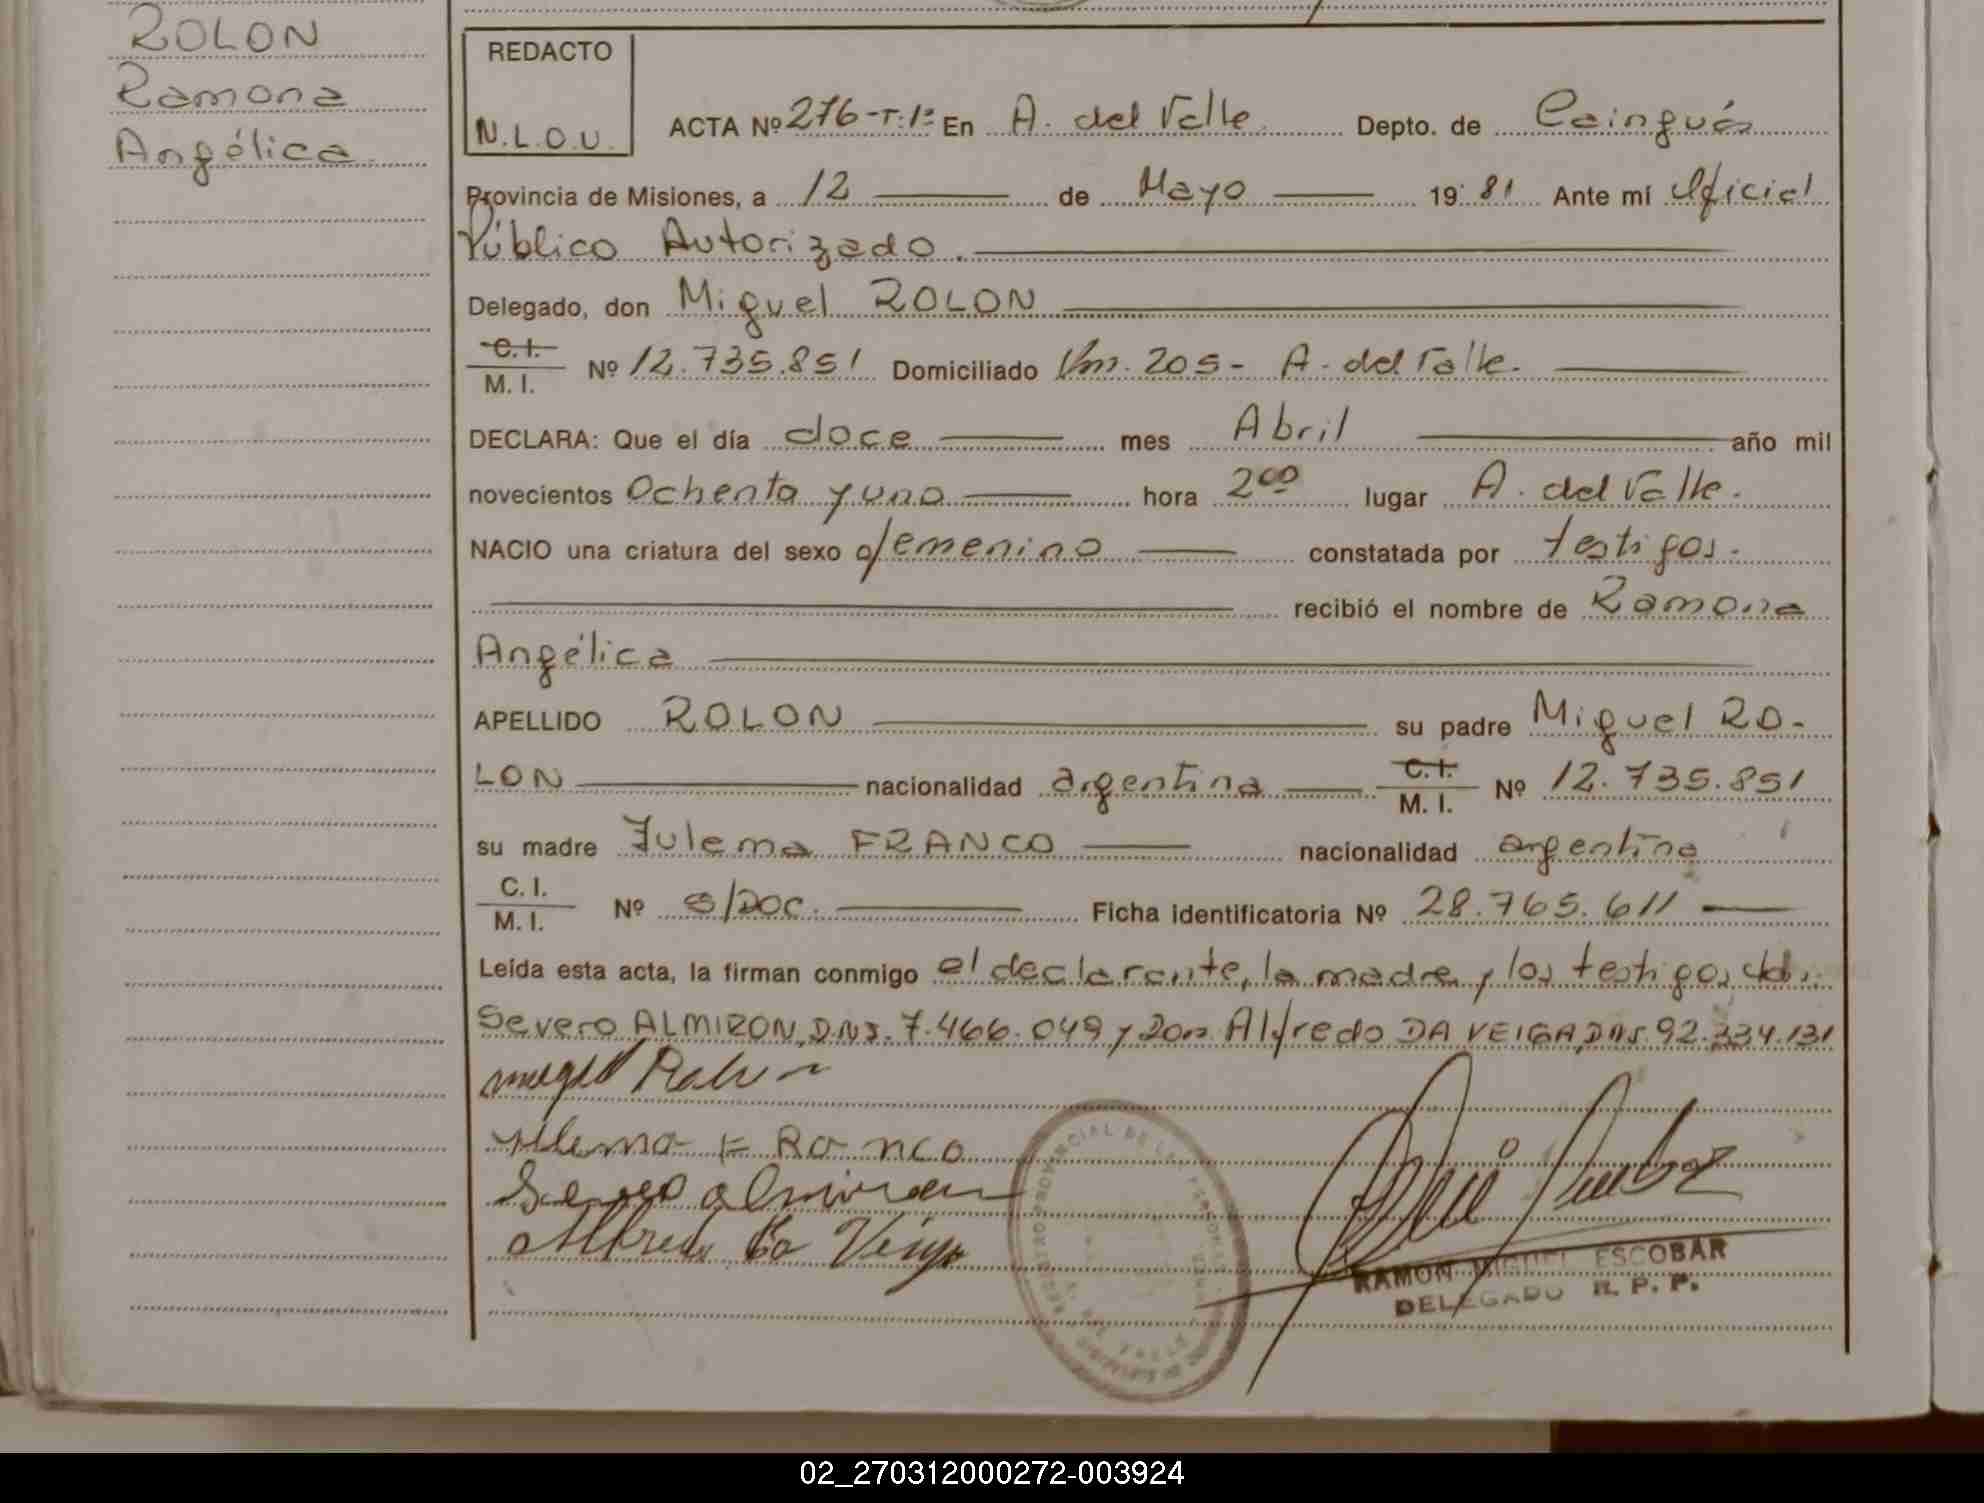 ROLON
Ramona
Angélica
REDACTO
N.L.O.U.
ACTA Nº 276-T:1º En A. del Valle Depto. de Cainguás
Provincia de Misiones, a 12 de Mayo 1981 Ante mí Oficial
Público Autorizado.
Delegado, don Miguel ROLON
C.I.
M.I. Nº 12.735.851 Domiciliado Km. 205- A. del Valle.
DECLARA: Que el día doce mes Abril año mil
novecientos Ochenta y uno hora 2⁰⁰ lugar A. del Valle.
NACIO una criatura del sexo femenino constatada por testigos.
recibió el nombre de Ramona
Angélica
APELLIDO ROLON su padre Miguel RO-
LON nacionalidad argentina C.I.
M.I. Nº 12.735.851
su madre Zulema FRANCO nacionalidad argentina
C.I.
M.I. Nº s/DOC. Ficha identificatoria Nº 28.765.611
Leída esta acta, la firman conmigo el declarante, la madre y los testigos
Severo ALMIRON, D.N.I. 7.466.049 y Don Alfredo DA VEIGA, DNI. 92.334.131
Miguel Rolon
FRanco
Severo Almiron
Alfredo Da Veiga
REGISTRO PROVINCIAL DE LAS PERSONAS
RAMON MIGUEL ESCOBAR
DELEGADO R. P. P.
02_270312000272-003924